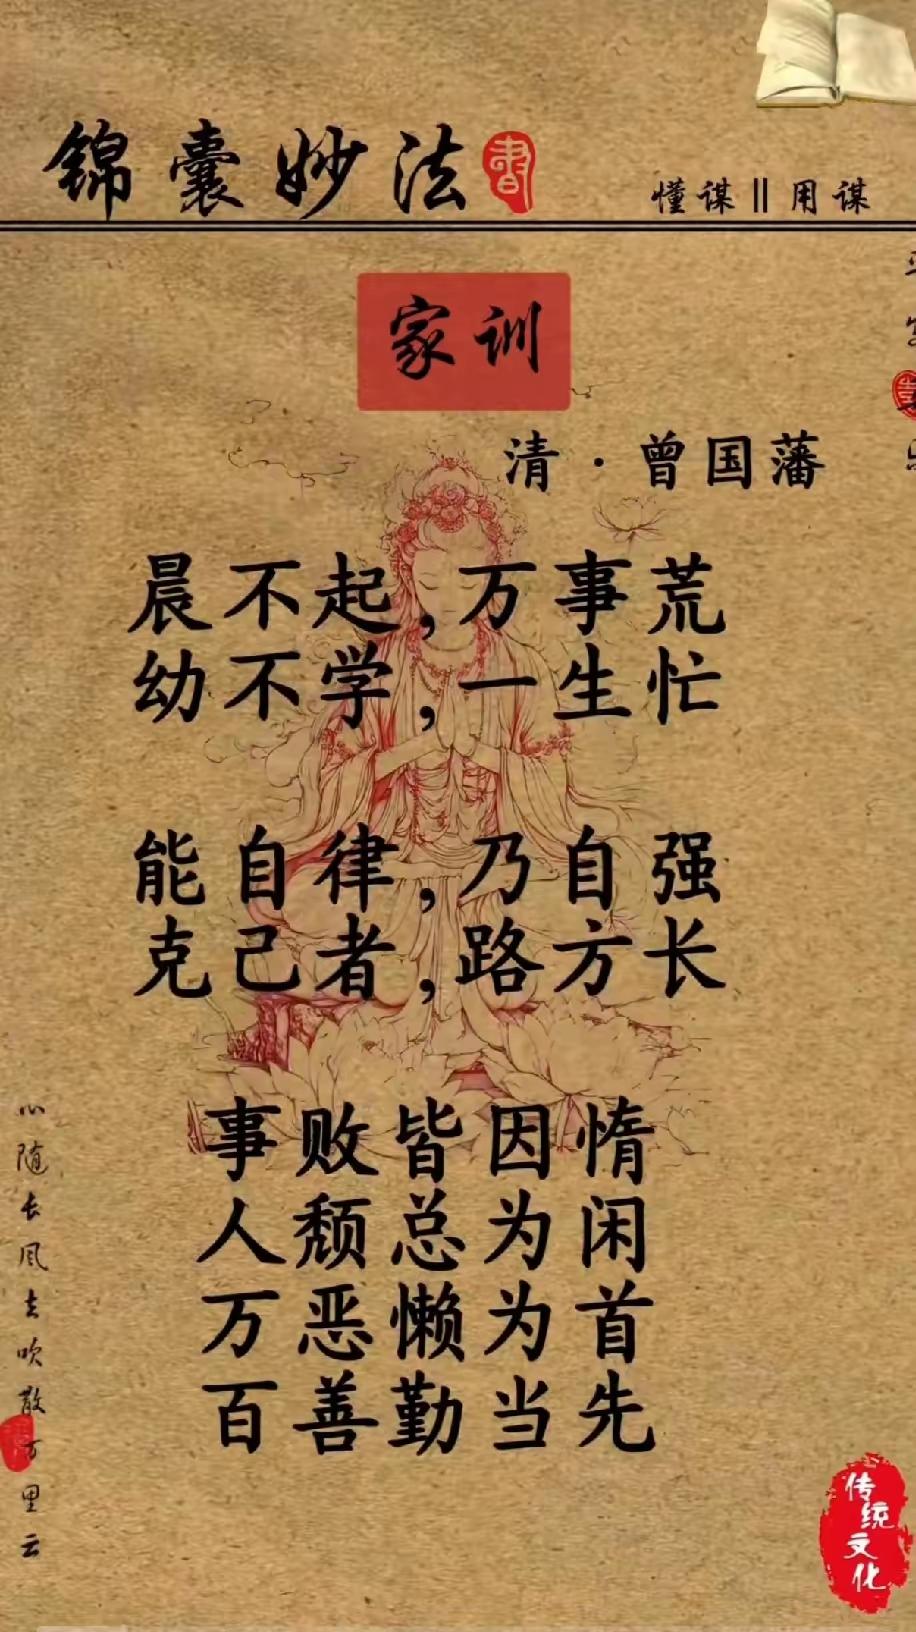 锦囊妙法
書
懂谋||用谋
家训
清·曾国藩
晨不起,万事荒
幼不学,一生忙
能自律,乃自强
克己者,路方长
事败皆因惰
人颓总为闲
万恶懒为首
百善勤当先
心随长风去吹散万里云
传统文化